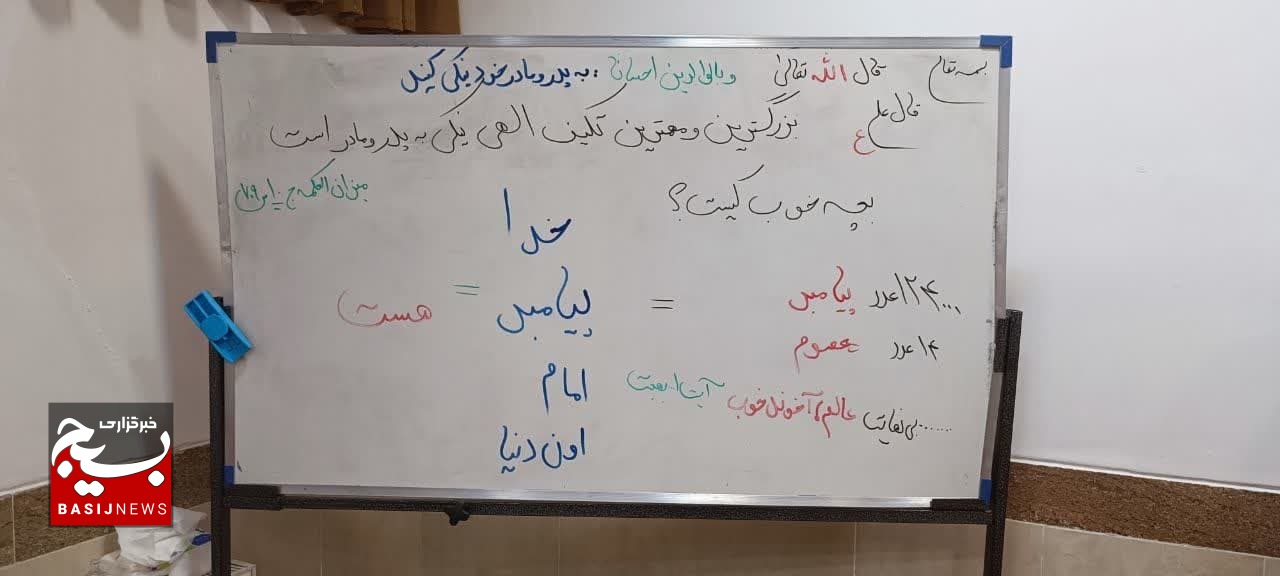 بسمه تعالی
قال الله تعالی وبالوالدین احسانا : به پدر و مادر خود نیکی کنید
قال علی ع بزرگترین و مهمترین تکلیف الهی نیکی به پدر و مادر است
میزان الحکمه ج
بچه خوب کیست؟
خدا
۱۲۴۰۰۰ عدد پیامبر = پیامبر = هست
۱۴ عدد معصوم
امام
...... بی نهایت عالم آخوند خوب
اون دنیا
خبرگزاری
بسیج
BASIJNEWS